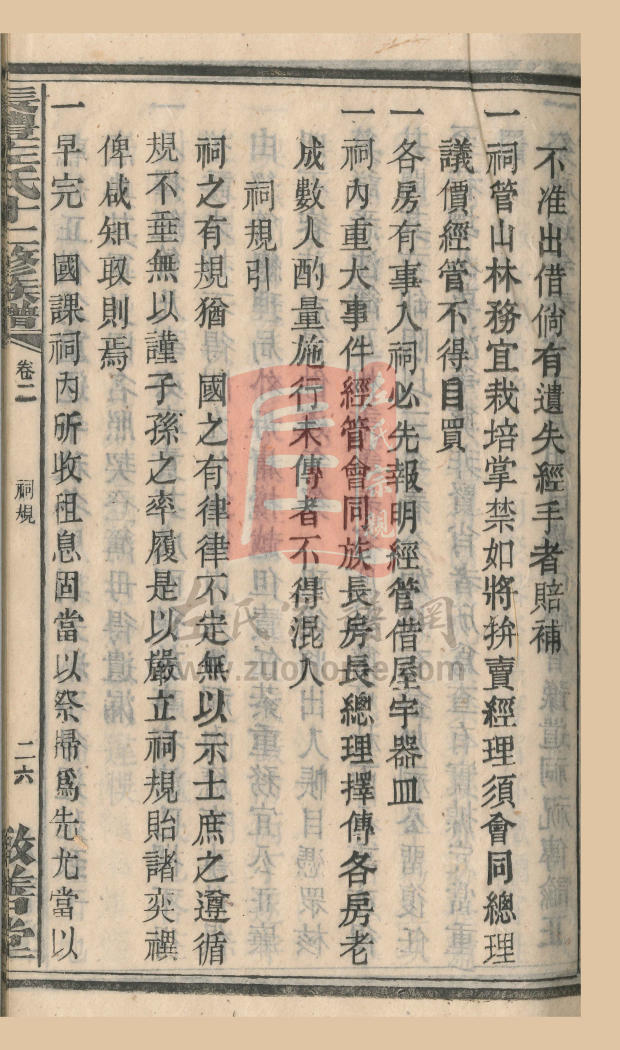 不准出借倘有遺失經手者賠補
一祠管山林務宜栽培掌禁如將拚賣經理須會同總理
議價經管不得自買
一各房有事入祠必先報明經管借屋宇器皿
一祠內重大事件經管會同族長房長總理擇傳各房老
成數人酌量施行未傳者不得混入
祠規引
祠之有規猶 國之有律律不定無以示士庶之遵循
規不垂無以謹子孫之率履是以嚴立祠規貽諸奕禩
俾咸知取則焉
一早完 國課祠內所收租息固當以祭掃爲先尤當以
左氏十二修族譜 卷二 祠規 二六 敦善堂
左氏宗親網
www.zuohome.com